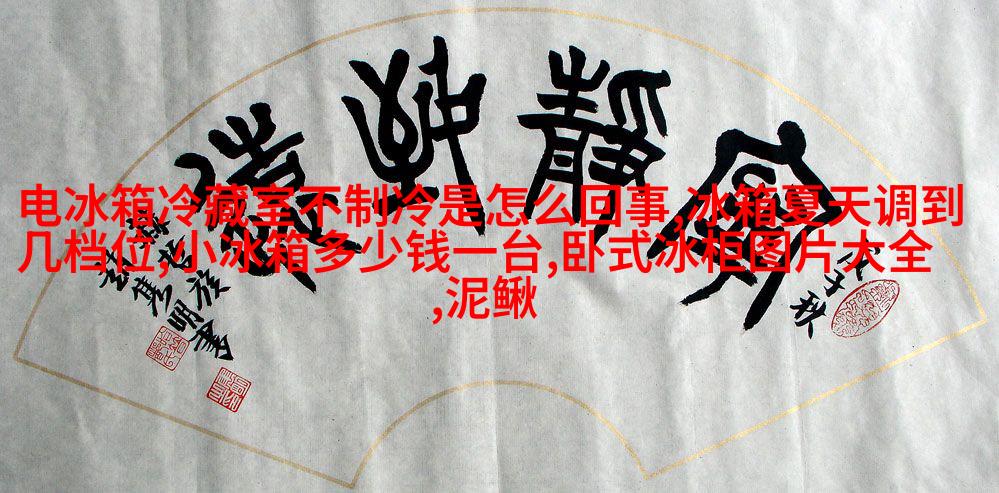 寧靜致遠
电冰箱冷藏室不制冷是怎么回事,冰箱夏天调到
几档位,小冰箱多少钱一台,卧式冰柜图片大全
,泥鳅
戊子秋